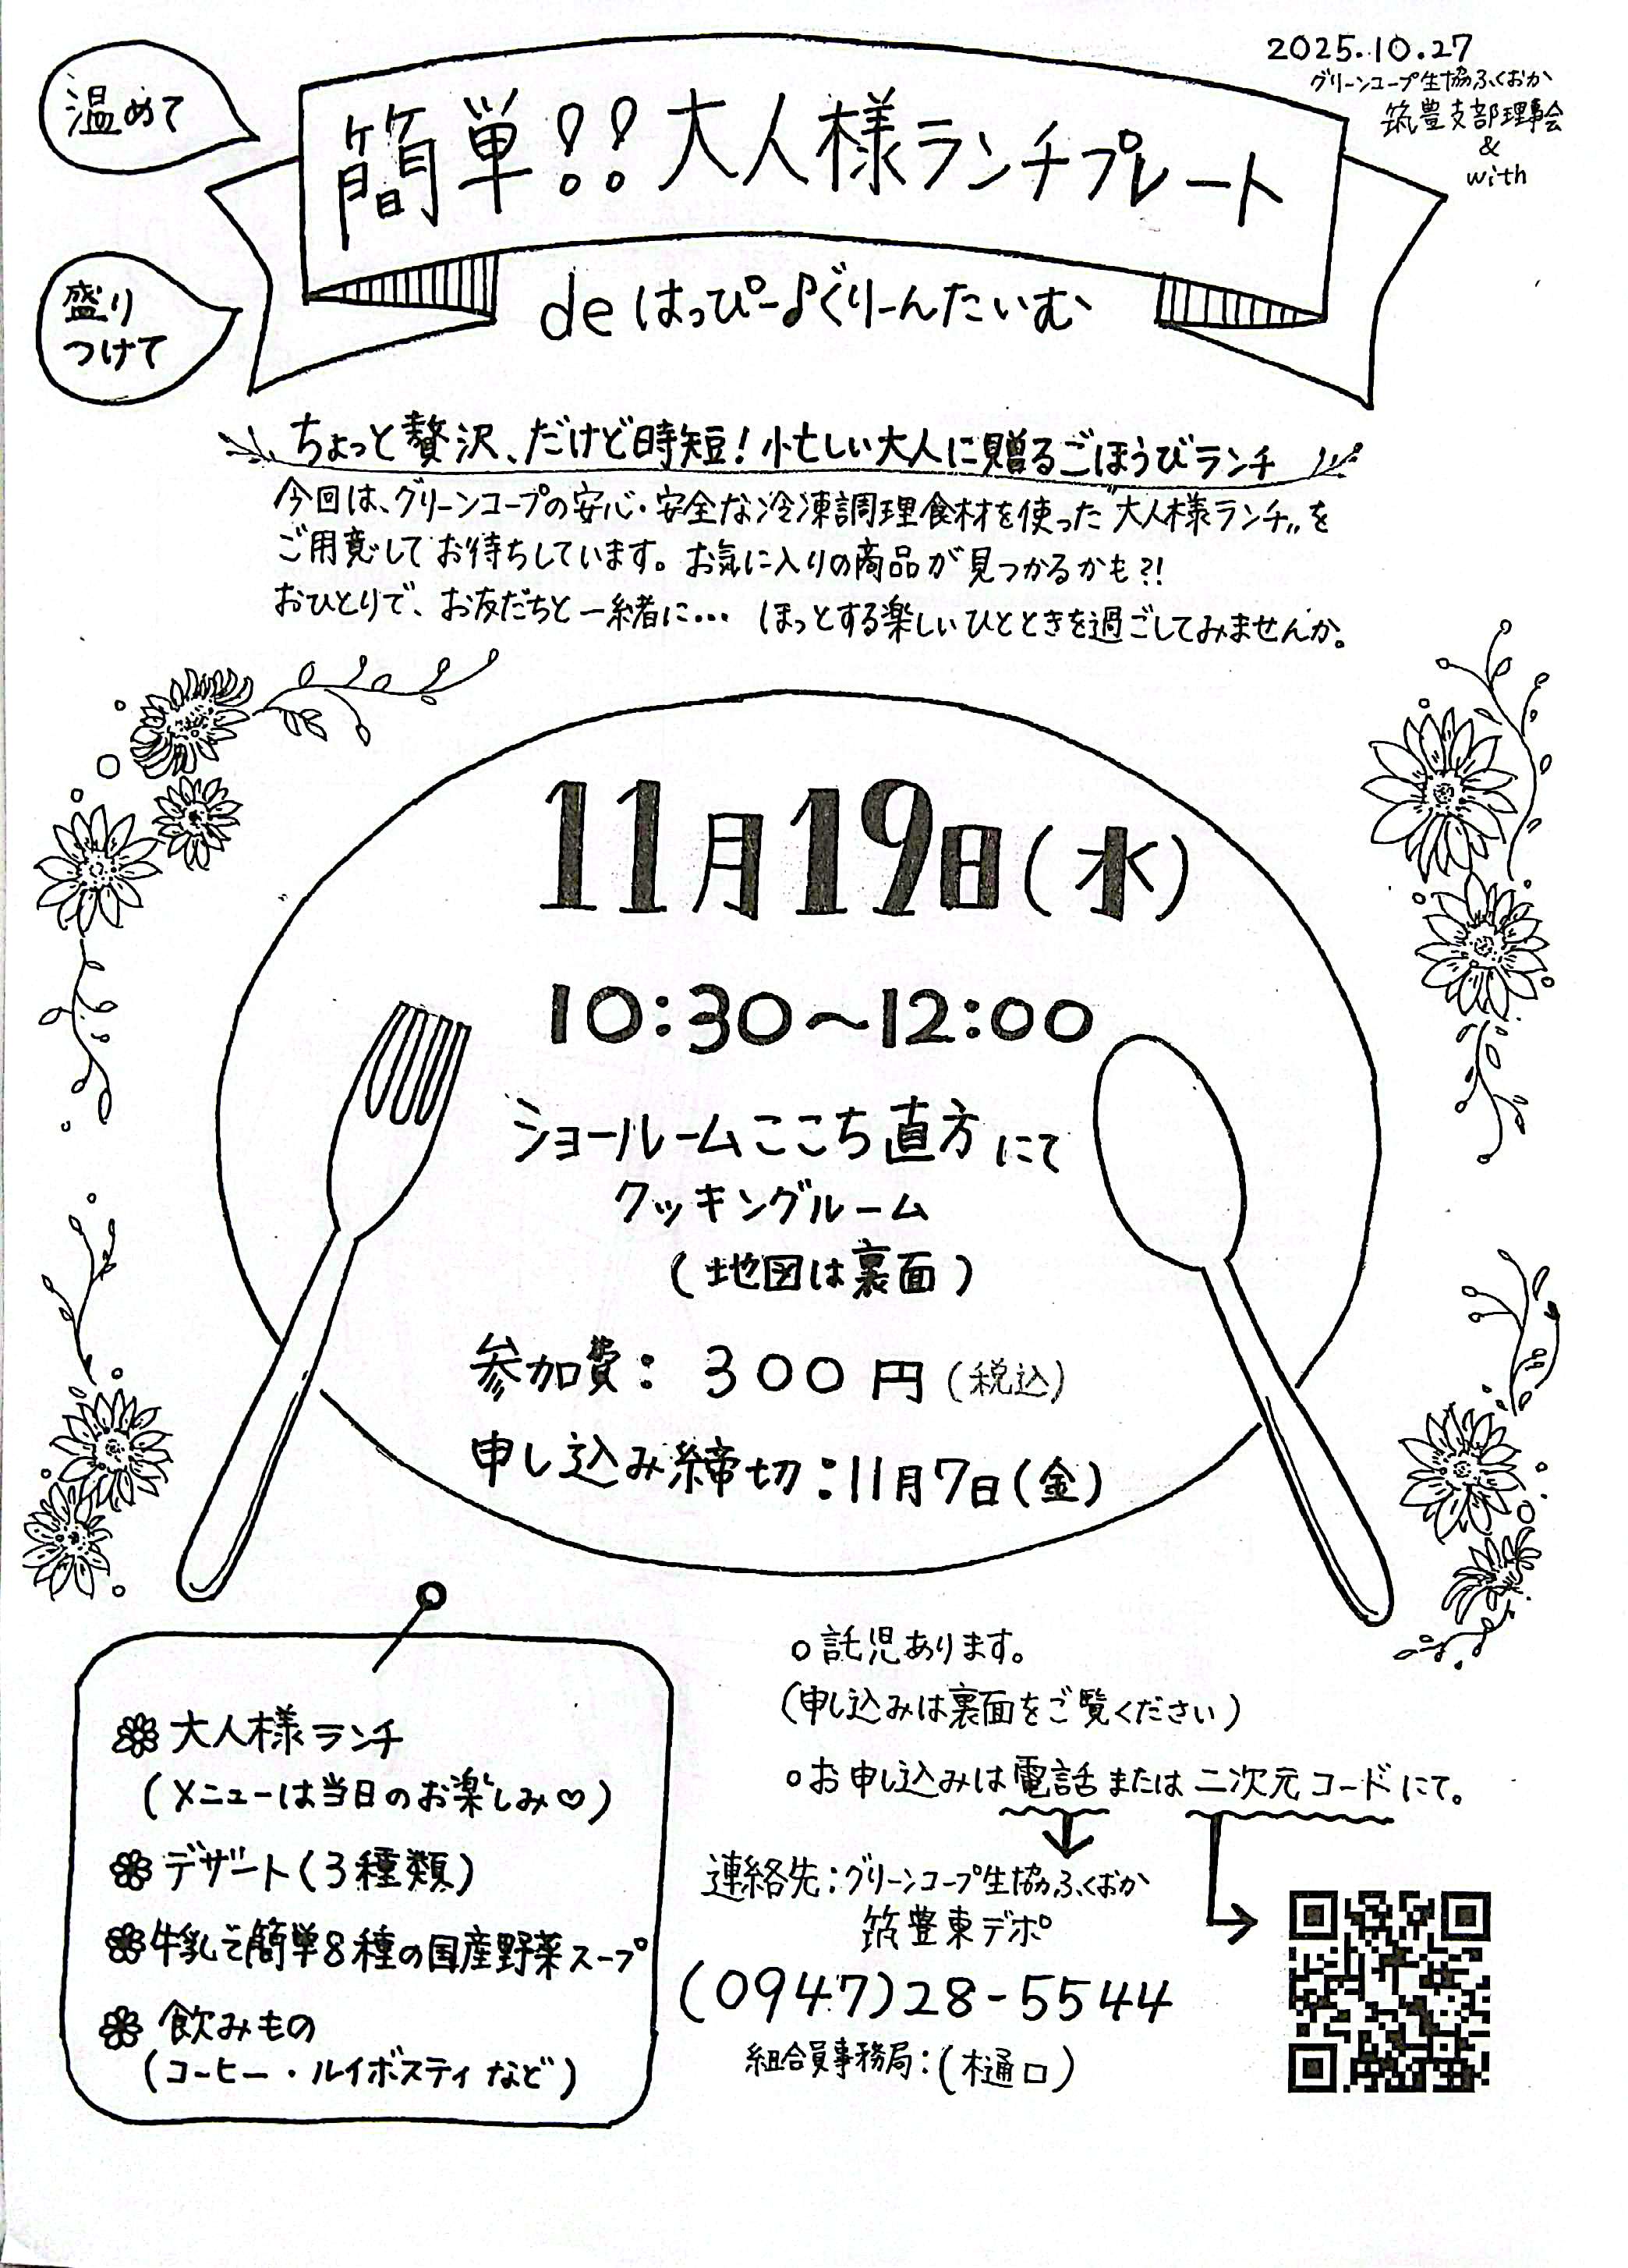 2025.10.27
グリーンコープ生協ふくおか
筑豊支部理事会
&
with
温めて
簡単!!大人様ランチプレート
盛り
つけて
de はっぴー♪ぐりーんたいむ
ちょっと贅沢、だけど時短!忙しい大人に贈るごほうびランチ
今回は、グリーンコープの安心・安全な冷凍調理食材を使った"大人様ランチ"を
ご用意してお待ちしています。お気に入りの商品が見つかるかも?!
おひとりで、お友だちと一緒に… ほっとする楽しいひとときを過ごしてみませんか。
11月19日(水)
10:30~12:00
ショールームここち直方にて
クッキングルーム
(地図は裏面)
参加費:300円(税込)
申し込み締切:11月7日(金)
大人様ランチ
(メニューは当日のお楽しみ♡)
デザート(3種類)
牛乳で簡単8種の国産野菜スープ
飲みもの
(コーヒー・ルイボスティなど)
○託児あります。
(申し込みは裏面をご覧ください)
○お申し込みは電話または二次元コードにて。
連絡先:グリーンコープ生協ふくおか
筑豊東デポ
(0947)28-5544
組合員事務局:(樋口)